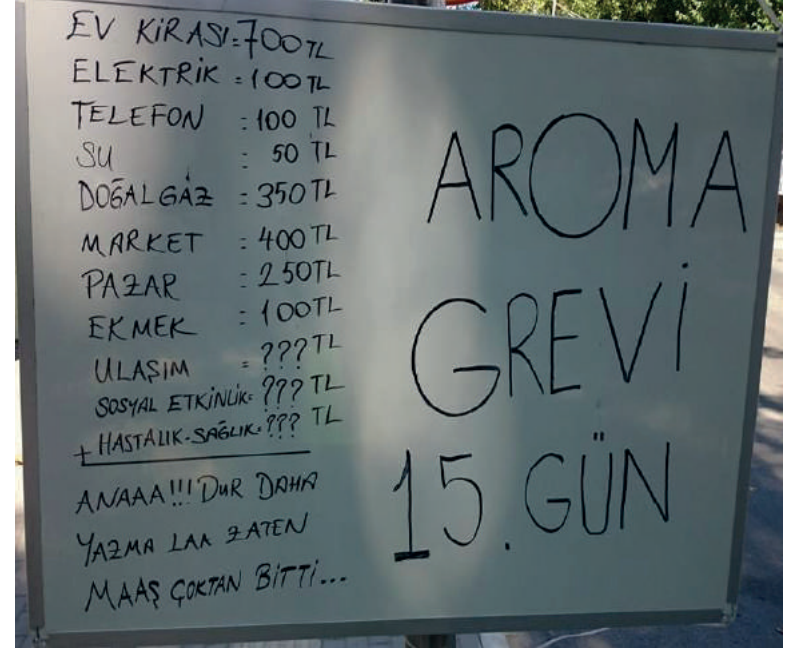 EV KİRASI=700 TL
ELEKTRİK = 100 TL
TELEFON : 100 TL
SU : 50 TL
DOĞALGAZ : 350 TL
MARKET : 400 TL
PAZAR : 250 TL
EKMEK : 100 TL
ULAŞIM = ??? TL
SOSYAL ETKİNLİK= ??? TL
+ HASTALIK-SAĞLIK= ??? TL
ANAAA!!! DUR DAHA
YAZMA LAA ZATEN
MAAŞ ÇOKTAN BİTTİ...
AROMA
GREVİ
15. GÜN